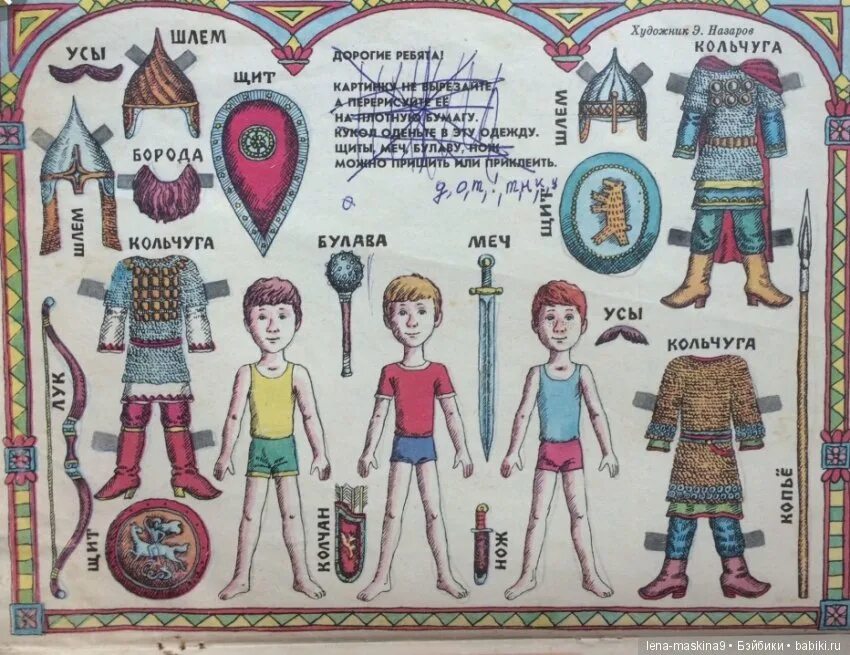 Художник Э. Назаров
УСЫ
ШЛЕМ
ЩИТ
ДОРОГИЕ РЕБЯТА!
КАРТИНКУ НЕ ВЫРЕЗАЙТЕ,
А ПЕРЕРИСУЙТЕ ЕЁ
НА ПЛОТНУЮ БУМАГУ.
КУКОЛ ОДЕНЬТЕ В ЭТУ ОДЕЖДУ.
ЩИТЫ, МЕЧ, БУЛАВУ, НОЖ
МОЖНО ПРИШИТЬ ИЛИ ПРИКЛЕИТЬ.
КОЛЬЧУГА
ШЛЕМ
БОРОДА
ШЛЕМ
ЩИТ
КОЛЬЧУГА
БУЛАВА
МЕЧ
УСЫ
КОЛЬЧУГА
ЛУК
КОПЬЁ
ЩИТ
КОЛЧАН
НОЖ
lena-maskina9 • Бэйбики • babiki.ru